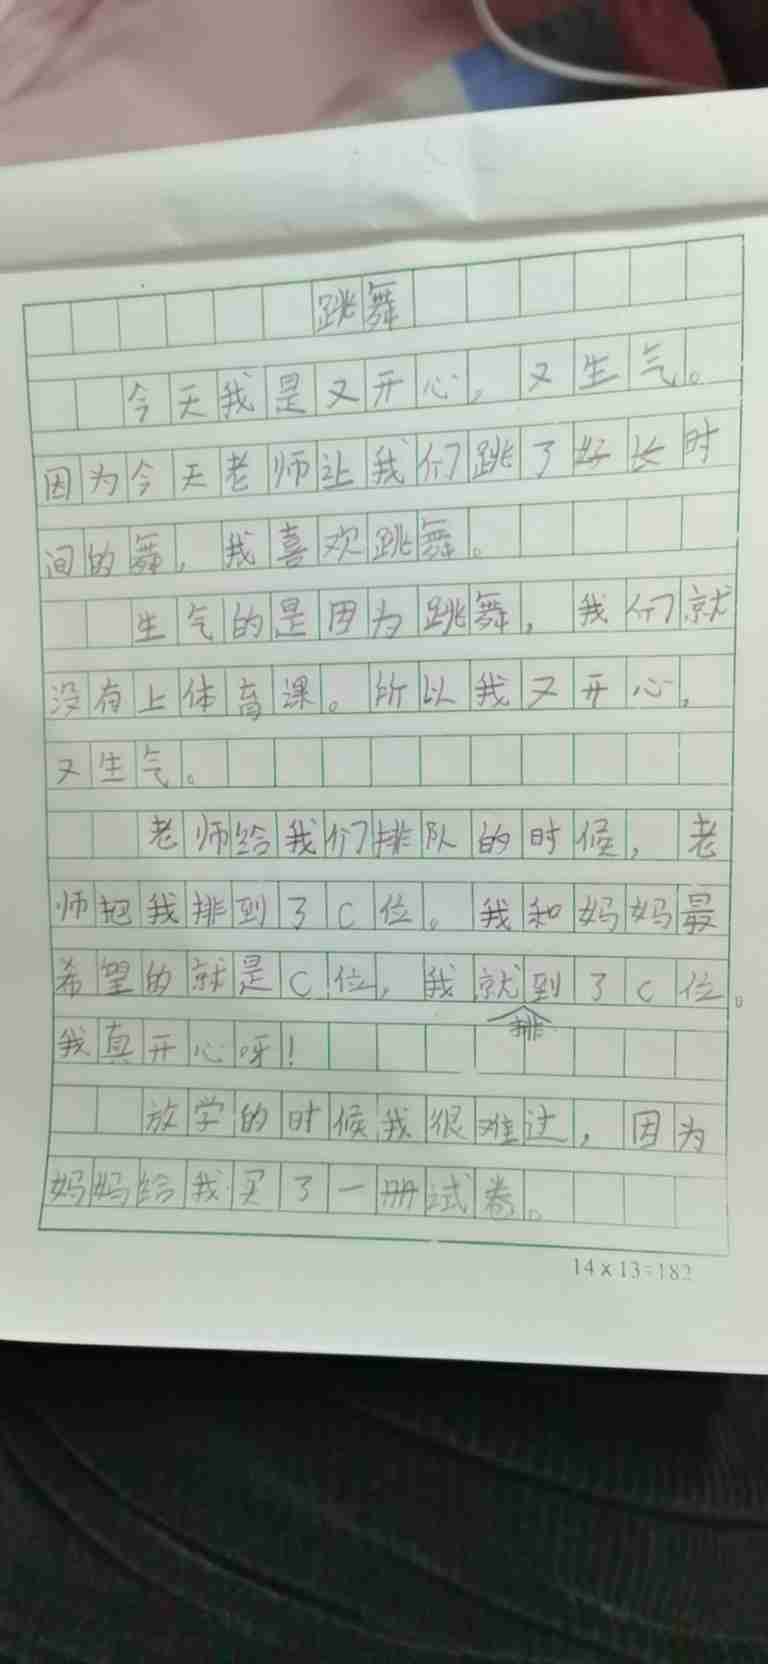 跳舞
今天我是又开心,又生气。
因为今天老师让我们跳了好长时
间的舞,我喜欢跳舞。
生气的是因为跳舞,我们就
没有上体育课。所以我又开心,
又生气。
老师给我们排队的时候,老
师把我排到了C位。我和妈妈最
希望的就是C位,我就排到了C位。
我真开心呀!
放学的时候我很难过,因为
妈妈给我买了一册试卷。
14×13=182